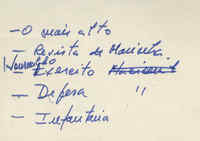 - O mais alto
- Revista de Marinha
- Exercito
- Defesa "
- Infantaria